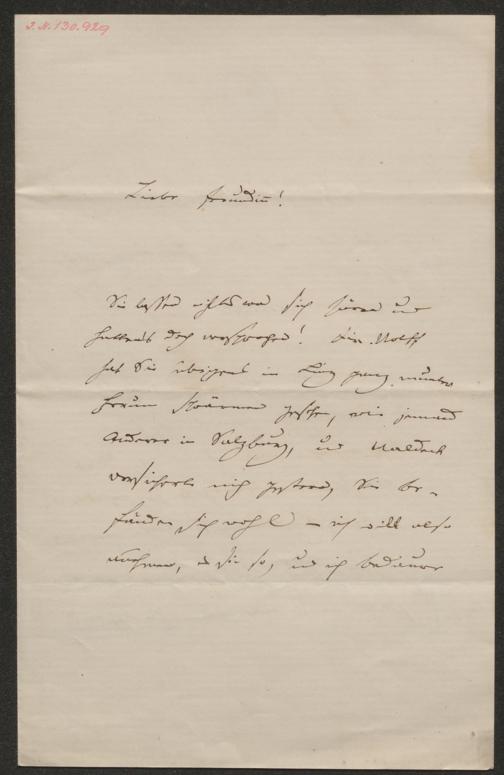 J.N. 130.929
Liebe Freundin!
Sie lassen nichts von sich hören und
hatten's doch versprochen! Die Wolff
hat Sie übrigens in Linz ganz munter
gesehen, wie jemand
Anderer in Salzburg, und Waldeck
versicherte mich gestern, Sie be-
fänden sich wohl – ich will also
annehmen, es sei so, und ich bedaure